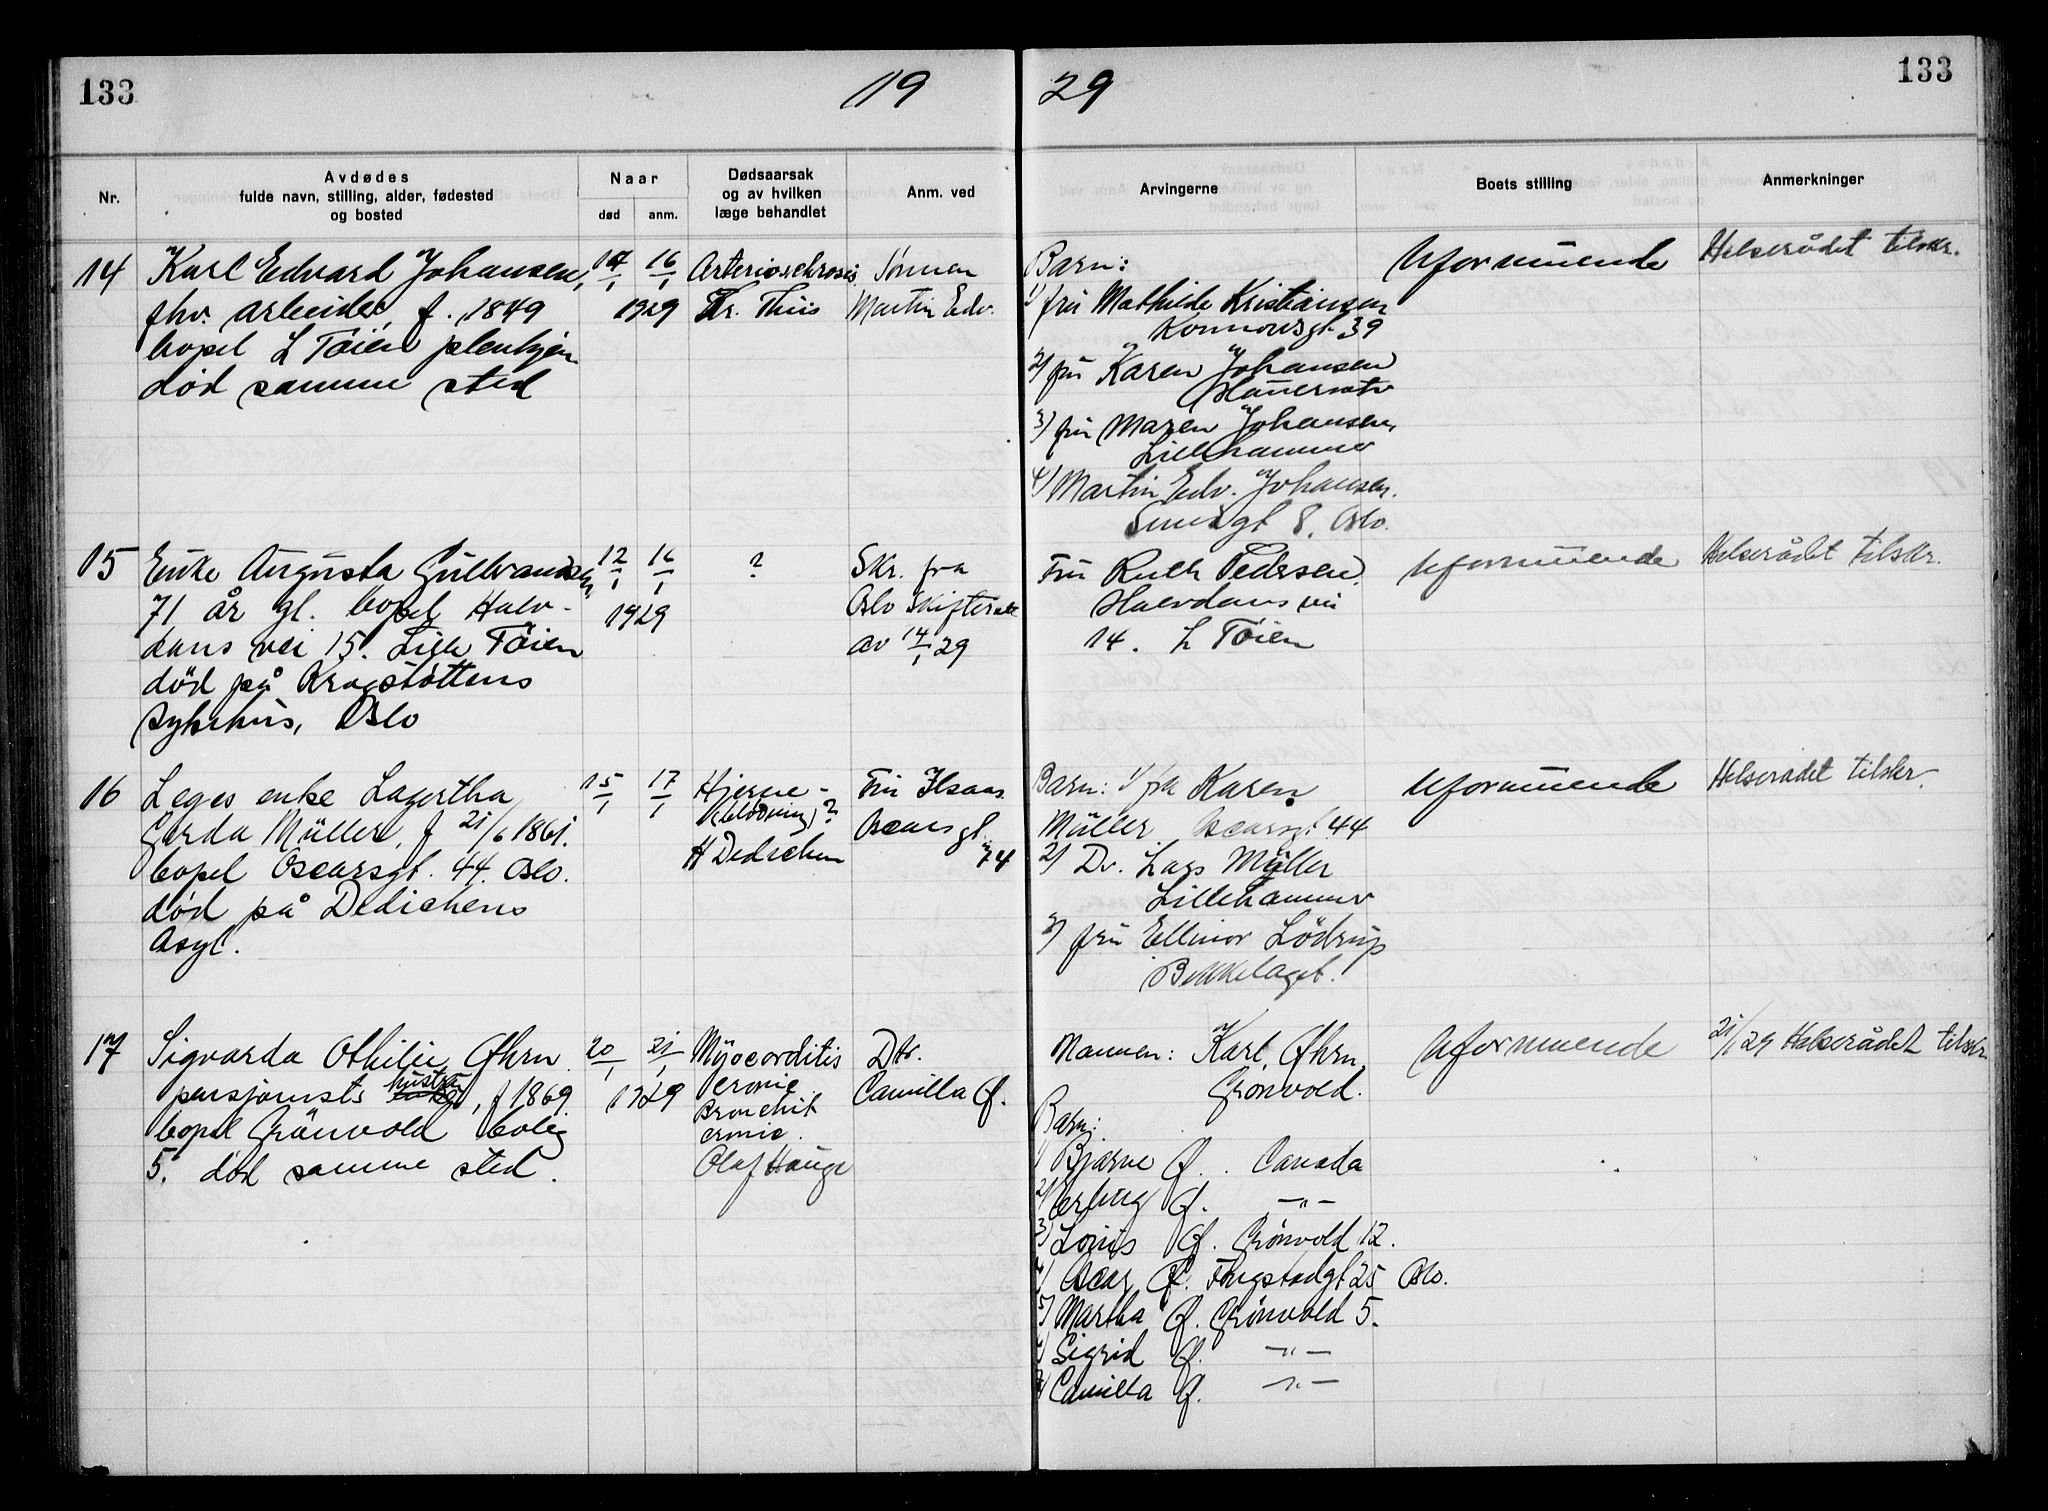 133
19 29
133
Nr.
Avdødes
fulde navn, stilling, alder, fødested
og bosted
Naar
død
anm.
Dødsaarsak
og av hvilken
læge behandlet
Anm. ved
Arvingerne
Boets stilling
Anmerkninger
14
Karl Edvard Johansen,
fhv. arbeider, f. 1849
bopel L Töien pleiehjem
död samme sted
16/1
1929
Arteriosclrosis
Kr. Thiis
Sönnen
Martin Edv.
Barn:
1) fru Mathilde Kristiansen
39
2) fru Karen Johansen
3) fru Maren Johansen,
Lillehammer
4) Martin Edv. Johansen.
8. Oslo.
Uformuende
Helserådet tilskr.
15
Enke Augusta Gulbrandsen
71 år gl. bopel Halv-
dans vei 15. Lille Töien
död på Krogstöttens
sykehus, Oslo
12/1
16/1
1929
?
Skr. fra
Oslo Skifterett
av 14/1 29
Fru Ruth Pedersen.
Halvdans vei
14. L Töien
Uformuende
Helserådet tilskr.
16
Leges enke Lagertha
Gerda Müller, f 21/6 1861.
bopel Oscarsgt. 44. Oslo.
död på Dedichens
Asyl.
15/1
17/1
Hjerne-
blödning)?
H Dedichen
Fru Ilsaas
Oscarsgt.
74
Barn: 1) fru Karen
Müller Oscarsgt 44
2) Dr. Lars Müller
Lillehammer
3) fru Ellinor Lödrup
Bekkelaget.
Uformuende
Helserådet tilskr.
17
Sigvarda Othilie Øhrn
pensjonists hustru, f 1869
bopel Grönvold bolig
5. död samme sted.
20/1
21/1
1929
Myocorditis
cronic
Bronchit
cronic.
Olaf Hauge
Dtr.
Camilla Ø.
Mannen: Karl Øhrn,
Grönvold.
Barn:
1) Bjarne Ø. Canada
2) Erling Ø. -"-
3) Louis Ø. Grönvold 12.
4) Oscar Ø. 25 Oslo.
5) Martha Ø. Grönvold 5.
6) Sigrid Ø. -"-
7) Camilla Ø. -"-
Uformuende
21/1 29 Helserådet tilskr.